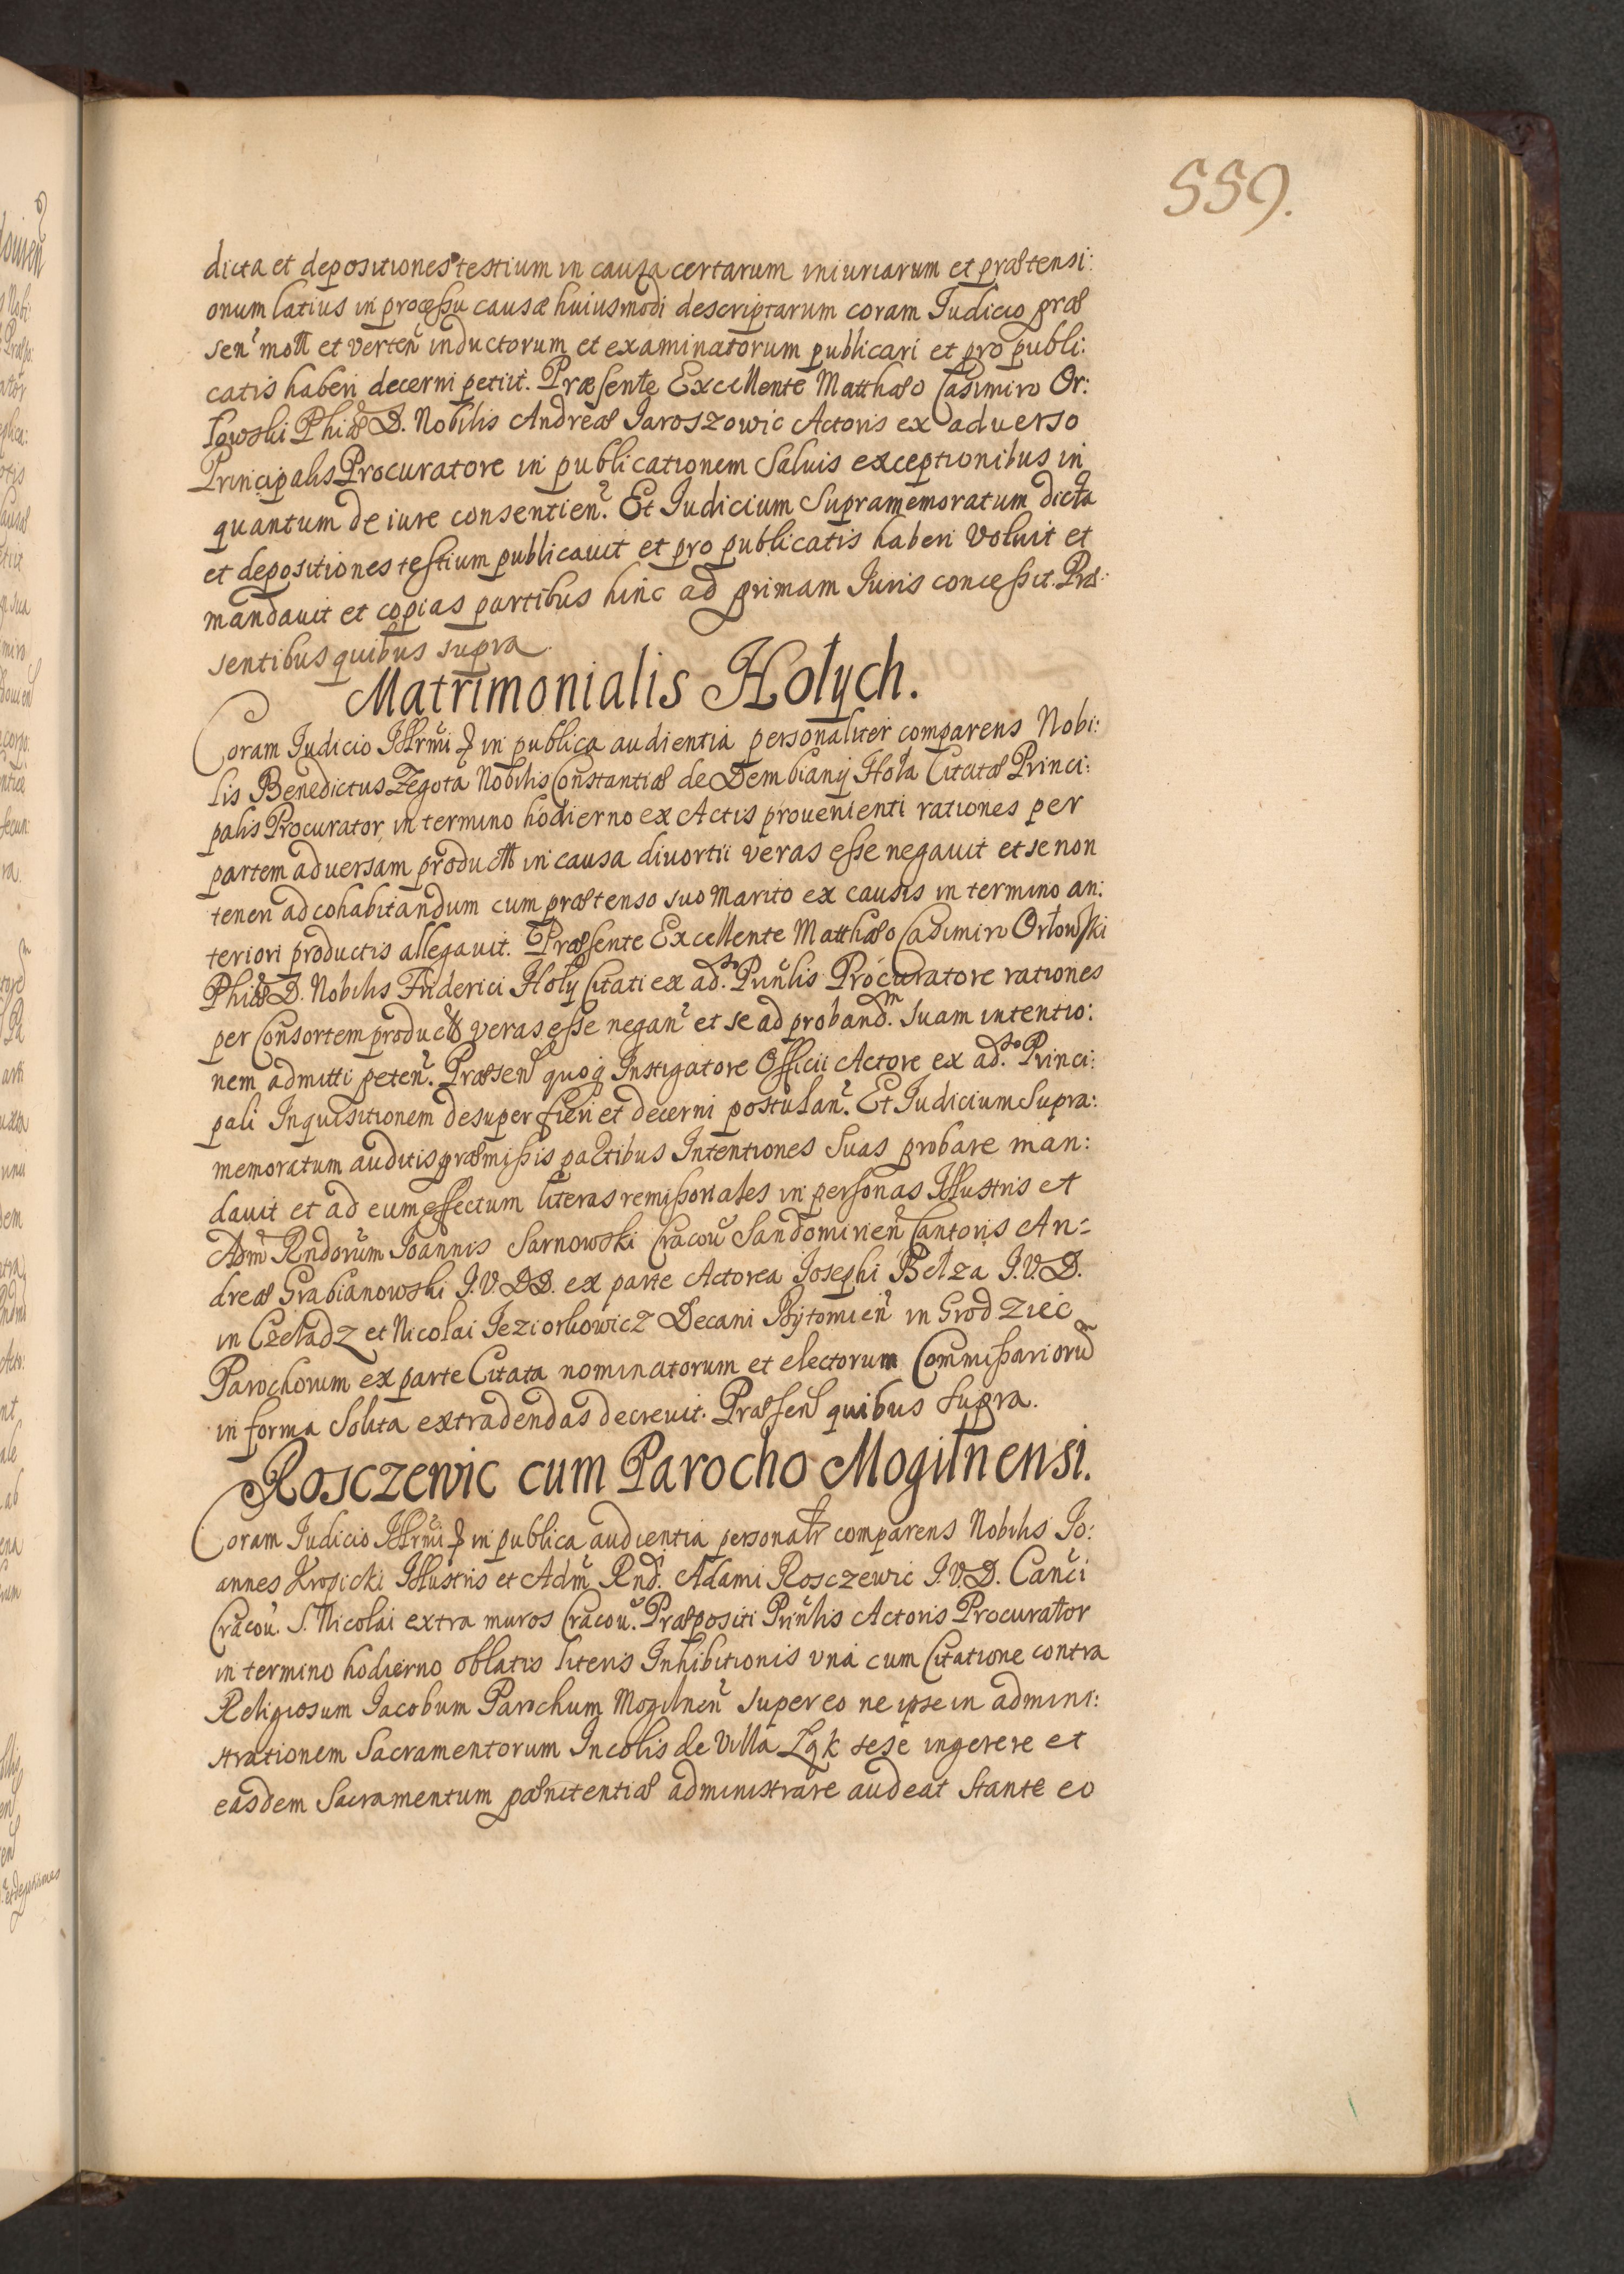 559.
dicta et depositiones testium in causa certarum iniuriarum et prætensi:
onum latius in processu causæ huiusmodi descriptarum coram Iudicio præ
sen mott et verten inductorum et examinatorum publicari et pro publi:
catis haberi decerni petiit. Præsente Excellente Matthæo Casimiro Or:
łowski Phiæ D. Nobilis Andreæ Jaroszowic Actoris ex adverso
Principalis Procuratore in publicationem salvis exceptionibus in
quantum de iure consentien. Et Iudicium Supramemoratum dicta
et depositiones testium publicavit et pro publicatis haberi voluit et
mandavit et copias partibus hinc ad primam Iuris concessit. Præ:
sentibus quibus supra.
Matrimonialis Hołych.
Coram Iudicio Illrmi & in publica audientia personaliter comparens Nobi:
lis Benedictus Zegota Nobilis Constantiæ de Dembiany Hoła Citatæ Princi:
palis Procurator in termino hodierno ex Actis provenienti rationes per
partem adversam product in causa divortii veras esse negavit et se non
teneri ad cohabitandum cum prætenso suo Marito ex causis in termino an:
teriori productis allegavit. Præsente Excellente Matthæo Casimiro Orłowski
Phiæ D. Nobilis Friderici Hoły Citati ex ad.so Prinlis Procuratore rationes
per Consortem product veras esse negan et se ad proband.m suam intentio:
nem admitti peten. Præsen quoq Instigatore Officii Actore ex ad.so Princi:
pali Inquisitionem desuper fieri et decerni postulan. Et Iudicium Supra:
memoratum auditis præmissis partibus Intentiones suas probare man:
davit et ad eum effectum literas remissoriales in personas Illustris et
Adm Rndorum Joannis Sarnowski Cracov Sandomirien Cantoris An:
dreæ Grabianowski I.V.DD. ex parte Actorea Josephi Bełza I.V.D.
in Czeladz et Nicolai Jeziorkowicz Decani Bytomien in Grodziec
Parochorum ex parte Citata nominatorum et electorum Commissariorum
in forma solita extradendas decrevit. Præsen quibus supra.
Rosczewic cum Parocho Mogilnensi.
Coram Iudicio Illrmi & in publica audientia personalr comparens Nobilis Jo:
annes Kropicki Illustris et Adm Rnd. Adami Rosczewic I.V.D. Canci
Cracov. S. Nicolai extra muros Cracov. Præpositi Prinlis Actoris Procurator
in termino hodierno oblatis literis Inhibitionis una cum Citatione contra
Religiosum Jacobum Parochum Mogilnen super eo ne ipse in admini:
strationem Sacramentorum Incolis de Villa Łęk sese ingerere et
easdem Sacramentum pænitentiæ administrare audeat stante eo